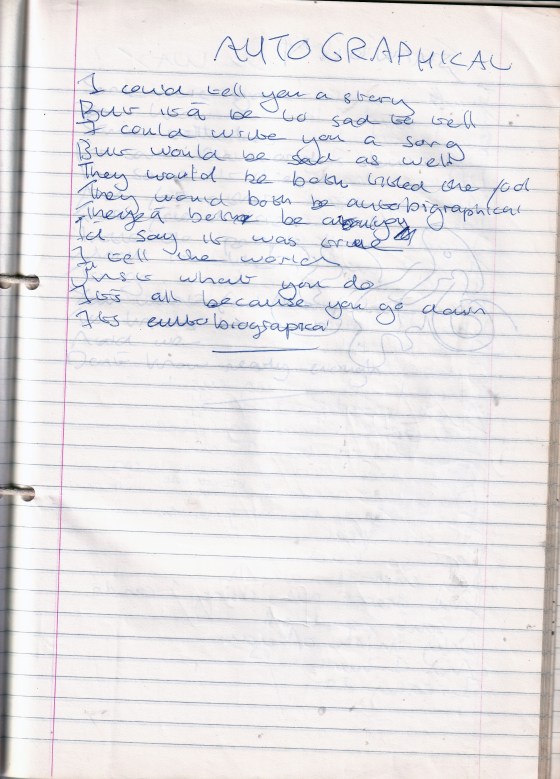 AUTOGRAPHICAL
I could tell you a story
But it'd be to sad to tell
I could write you a song
But would be sad as well
They would be both titled the
They would both be autobigraphical
be
I'd say it was true
I tell the world
what you do
It's all because you go down
Its autobiographical